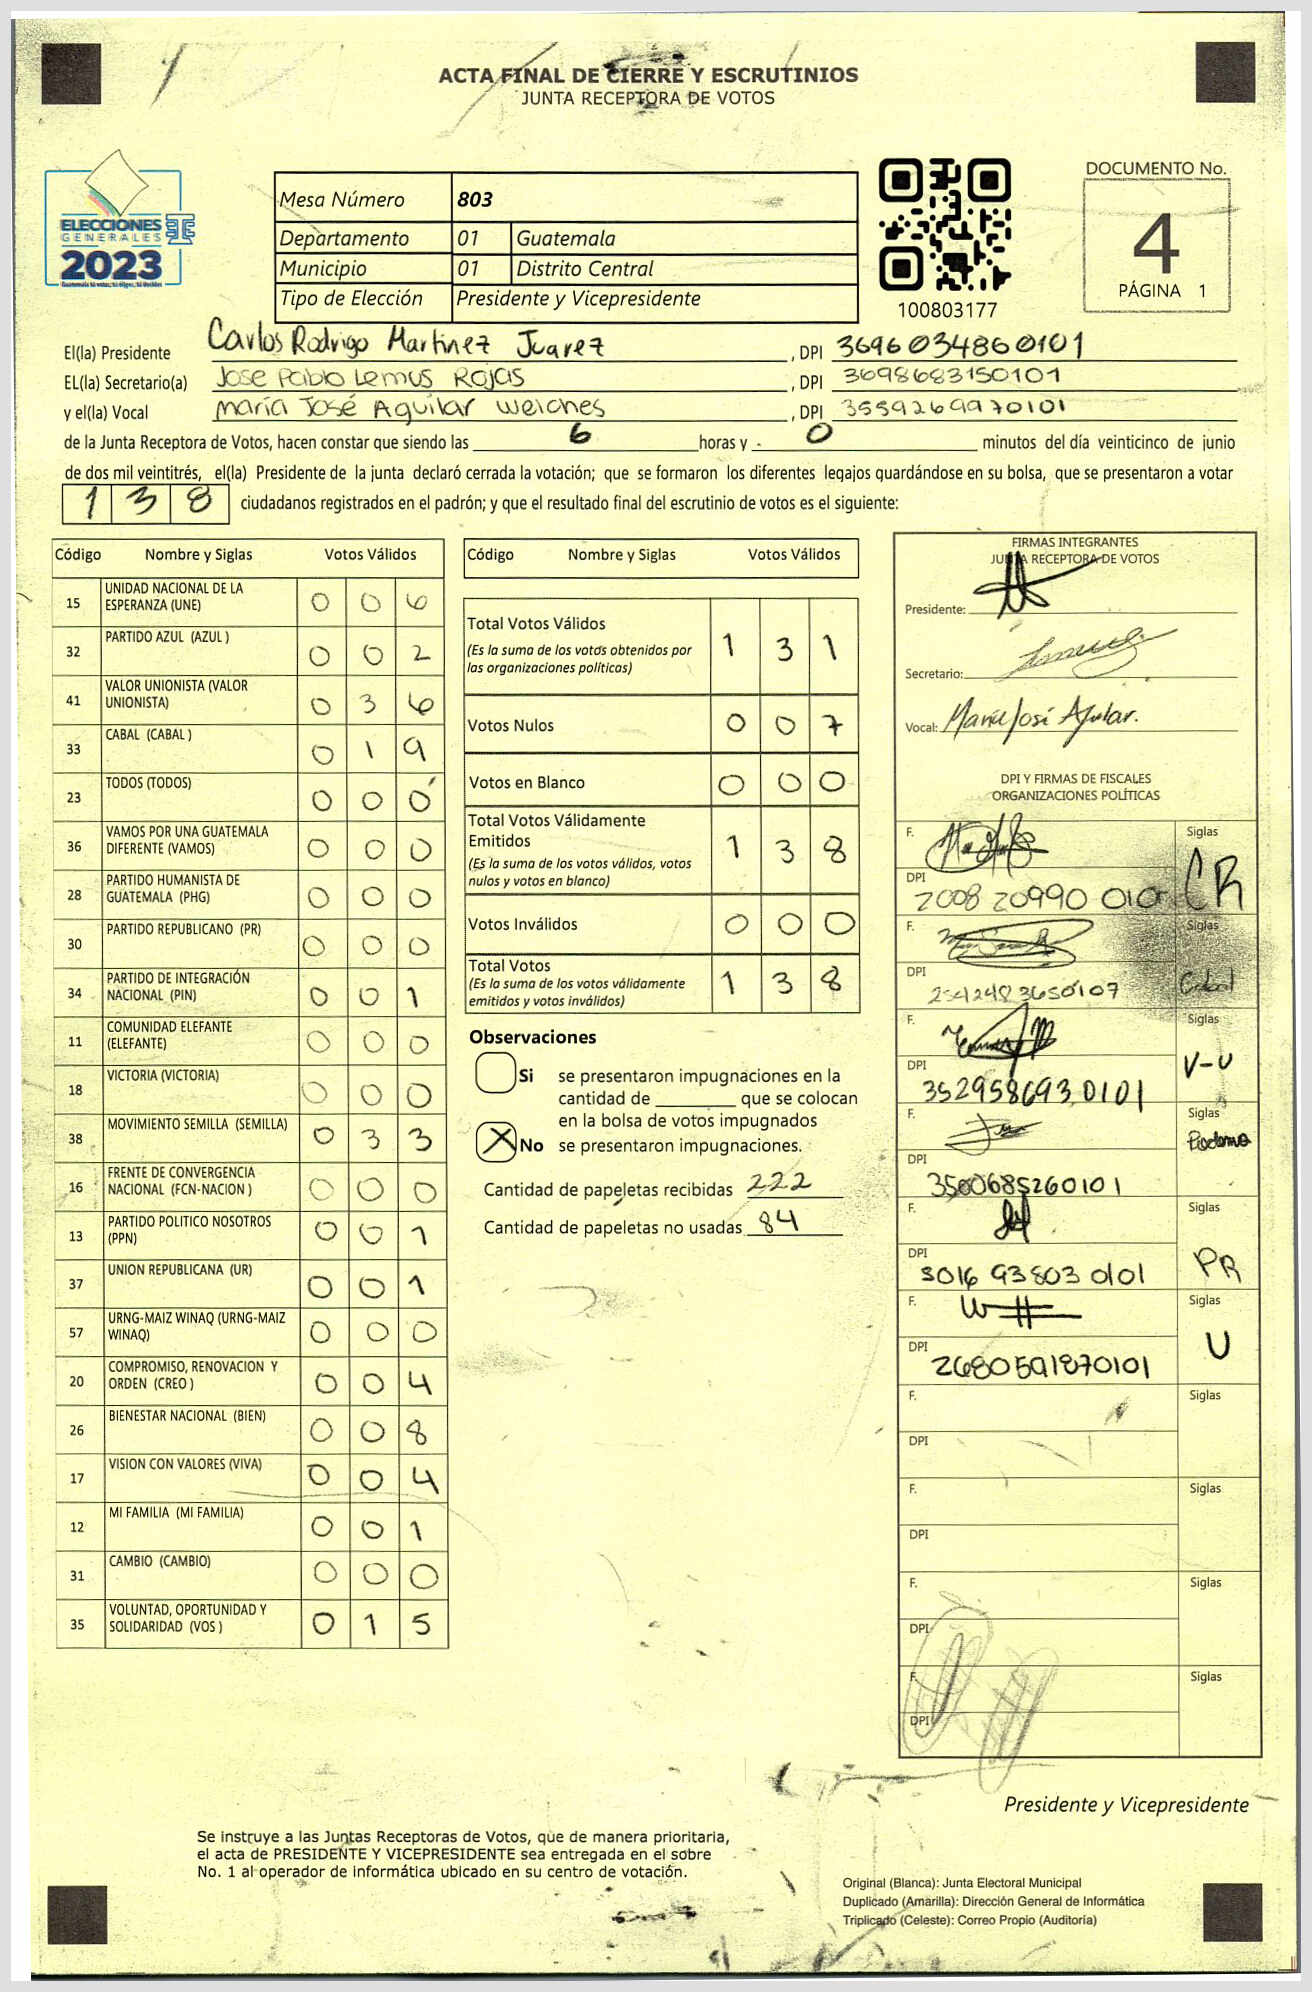 ACTA FINAL DE CIERRE Y ESCRUTINIOS
JUNTA RECEPTORA DE VOTOS
ELECCIONES
GENERALES
2023
Mesa Número 803
Departamento 01 Guatemala
Municipio 01 Distrito Central
Tipo de Elección Presidente y Vicepresidente
100803177
DOCUMENTO No.
4
PÁGINA 1
El(la) Presidente Carlos Rodrigo Martinez Juarez , DPI 3696034860101
EL(la) Secretario(a) Jose Pablo Lemus Rojas , DPI 3698683150101
y el(la) Vocal María José Aguilar , DPI 3559269970101
de la Junta Receptora de Votos, hacen constar que siendo las 6 horas y 0 minutos del día veinticinco de junio
de dos mil veintitrés, el(la) Presidente de la junta declaró cerrada la votación; que se formaron los diferentes legajos guardándose en su bolsa, que se presentaron a votar
1 3 8 ciudadanos registrados en el padrón; y que el resultado final del escrutinio de votos es el siguiente:
Código Nombre y Siglas Votos Válidos
15 UNIDAD NACIONAL DE LA ESPERANZA (UNE) 0 0 6
32 PARTIDO AZUL (AZUL ) 0 0 2
41 VALOR UNIONISTA (VALOR UNIONISTA) 0 3 6
33 CABAL (CABAL ) 0 1 9
23 TODOS (TODOS) 0 0 0
36 VAMOS POR UNA GUATEMALA DIFERENTE (VAMOS) 0 0 0
28 PARTIDO HUMANISTA DE GUATEMALA (PHG) 0 0 0
30 PARTIDO REPUBLICANO (PR) 0 0 0
34 PARTIDO DE INTEGRACIÓN NACIONAL (PIN) 0 0 1
11 COMUNIDAD ELEFANTE (ELEFANTE) 0 0 0
18 VICTORIA (VICTORIA) 0 0 0
38 MOVIMIENTO SEMILLA (SEMILLA) 0 3 3
16 FRENTE DE CONVERGENCIA NACIONAL (FCN-NACION ) 0 0 0
13 PARTIDO POLITICO NOSOTROS (PPN) 0 0 1
37 UNION REPUBLICANA (UR) 0 0 1
57 URNG-MAIZ WINAQ (URNG-MAIZ WINAQ) 0 0 0
20 COMPROMISO, RENOVACION Y ORDEN (CREO ) 0 0 4
26 BIENESTAR NACIONAL (BIEN) 0 0 8
17 VISION CON VALORES (VIVA) 0 0 4
12 MI FAMILIA (MI FAMILIA) 0 0 1
31 CAMBIO (CAMBIO) 0 0 0
35 VOLUNTAD, OPORTUNIDAD Y SOLIDARIDAD (VOS ) 0 1 5
Código Nombre y Siglas Votos Válidos
Total Votos Válidos 1 3 1
(Es la suma de los votos obtenidos por
las organizaciones políticas)
Votos Nulos 0 0 7
Votos en Blanco 0 0 0
Total Votos Válidamente
Emitidos 1 3 8
(Es la suma de los votos válidos, votos
nulos y votos en blanco)
Votos Inválidos 0 0 0
Total Votos 1 3 8
(Es la suma de los votos válidamente
emitidos y votos inválidos)
Observaciones
Si se presentaron impugnaciones en la
cantidad de ________ que se colocan
en la bolsa de votos impugnados
X No se presentaron impugnaciones.
Cantidad de papeletas recibidas 222
Cantidad de papeletas no usadas 84
FIRMAS INTEGRANTES
JUNTA RECEPTORA DE VOTOS
Presidente:
Secretario:
Vocal: María José Aguilar.
DPI Y FIRMAS DE FISCALES
ORGANIZACIONES POLÍTICAS
F. Siglas
CR
DPI 2008 20990 010
F. Siglas
Cabal
DPI 254248 3650107
F. Siglas
V-U
DPI 352958693 0101
F. Siglas
DPI 3500685260101
F. Siglas
PR
DPI 3016 93803 0101
F. Siglas
U
DPI 2680591870101
F. Siglas
DPI
F. Siglas
DPI
F. Siglas
DPI
F. Siglas
DPI
Presidente y Vicepresidente
Se instruye a las Juntas Receptoras de Votos, que de manera prioritaria,
el acta de PRESIDENTE Y VICEPRESIDENTE sea entregada en el sobre
No. 1 al operador de informática ubicado en su centro de votación.
Original (Blanca): Junta Electoral Municipal
Duplicado (Amarilla): Dirección General de Informática
Triplicado (Celeste): Correo Propio (Auditoría)